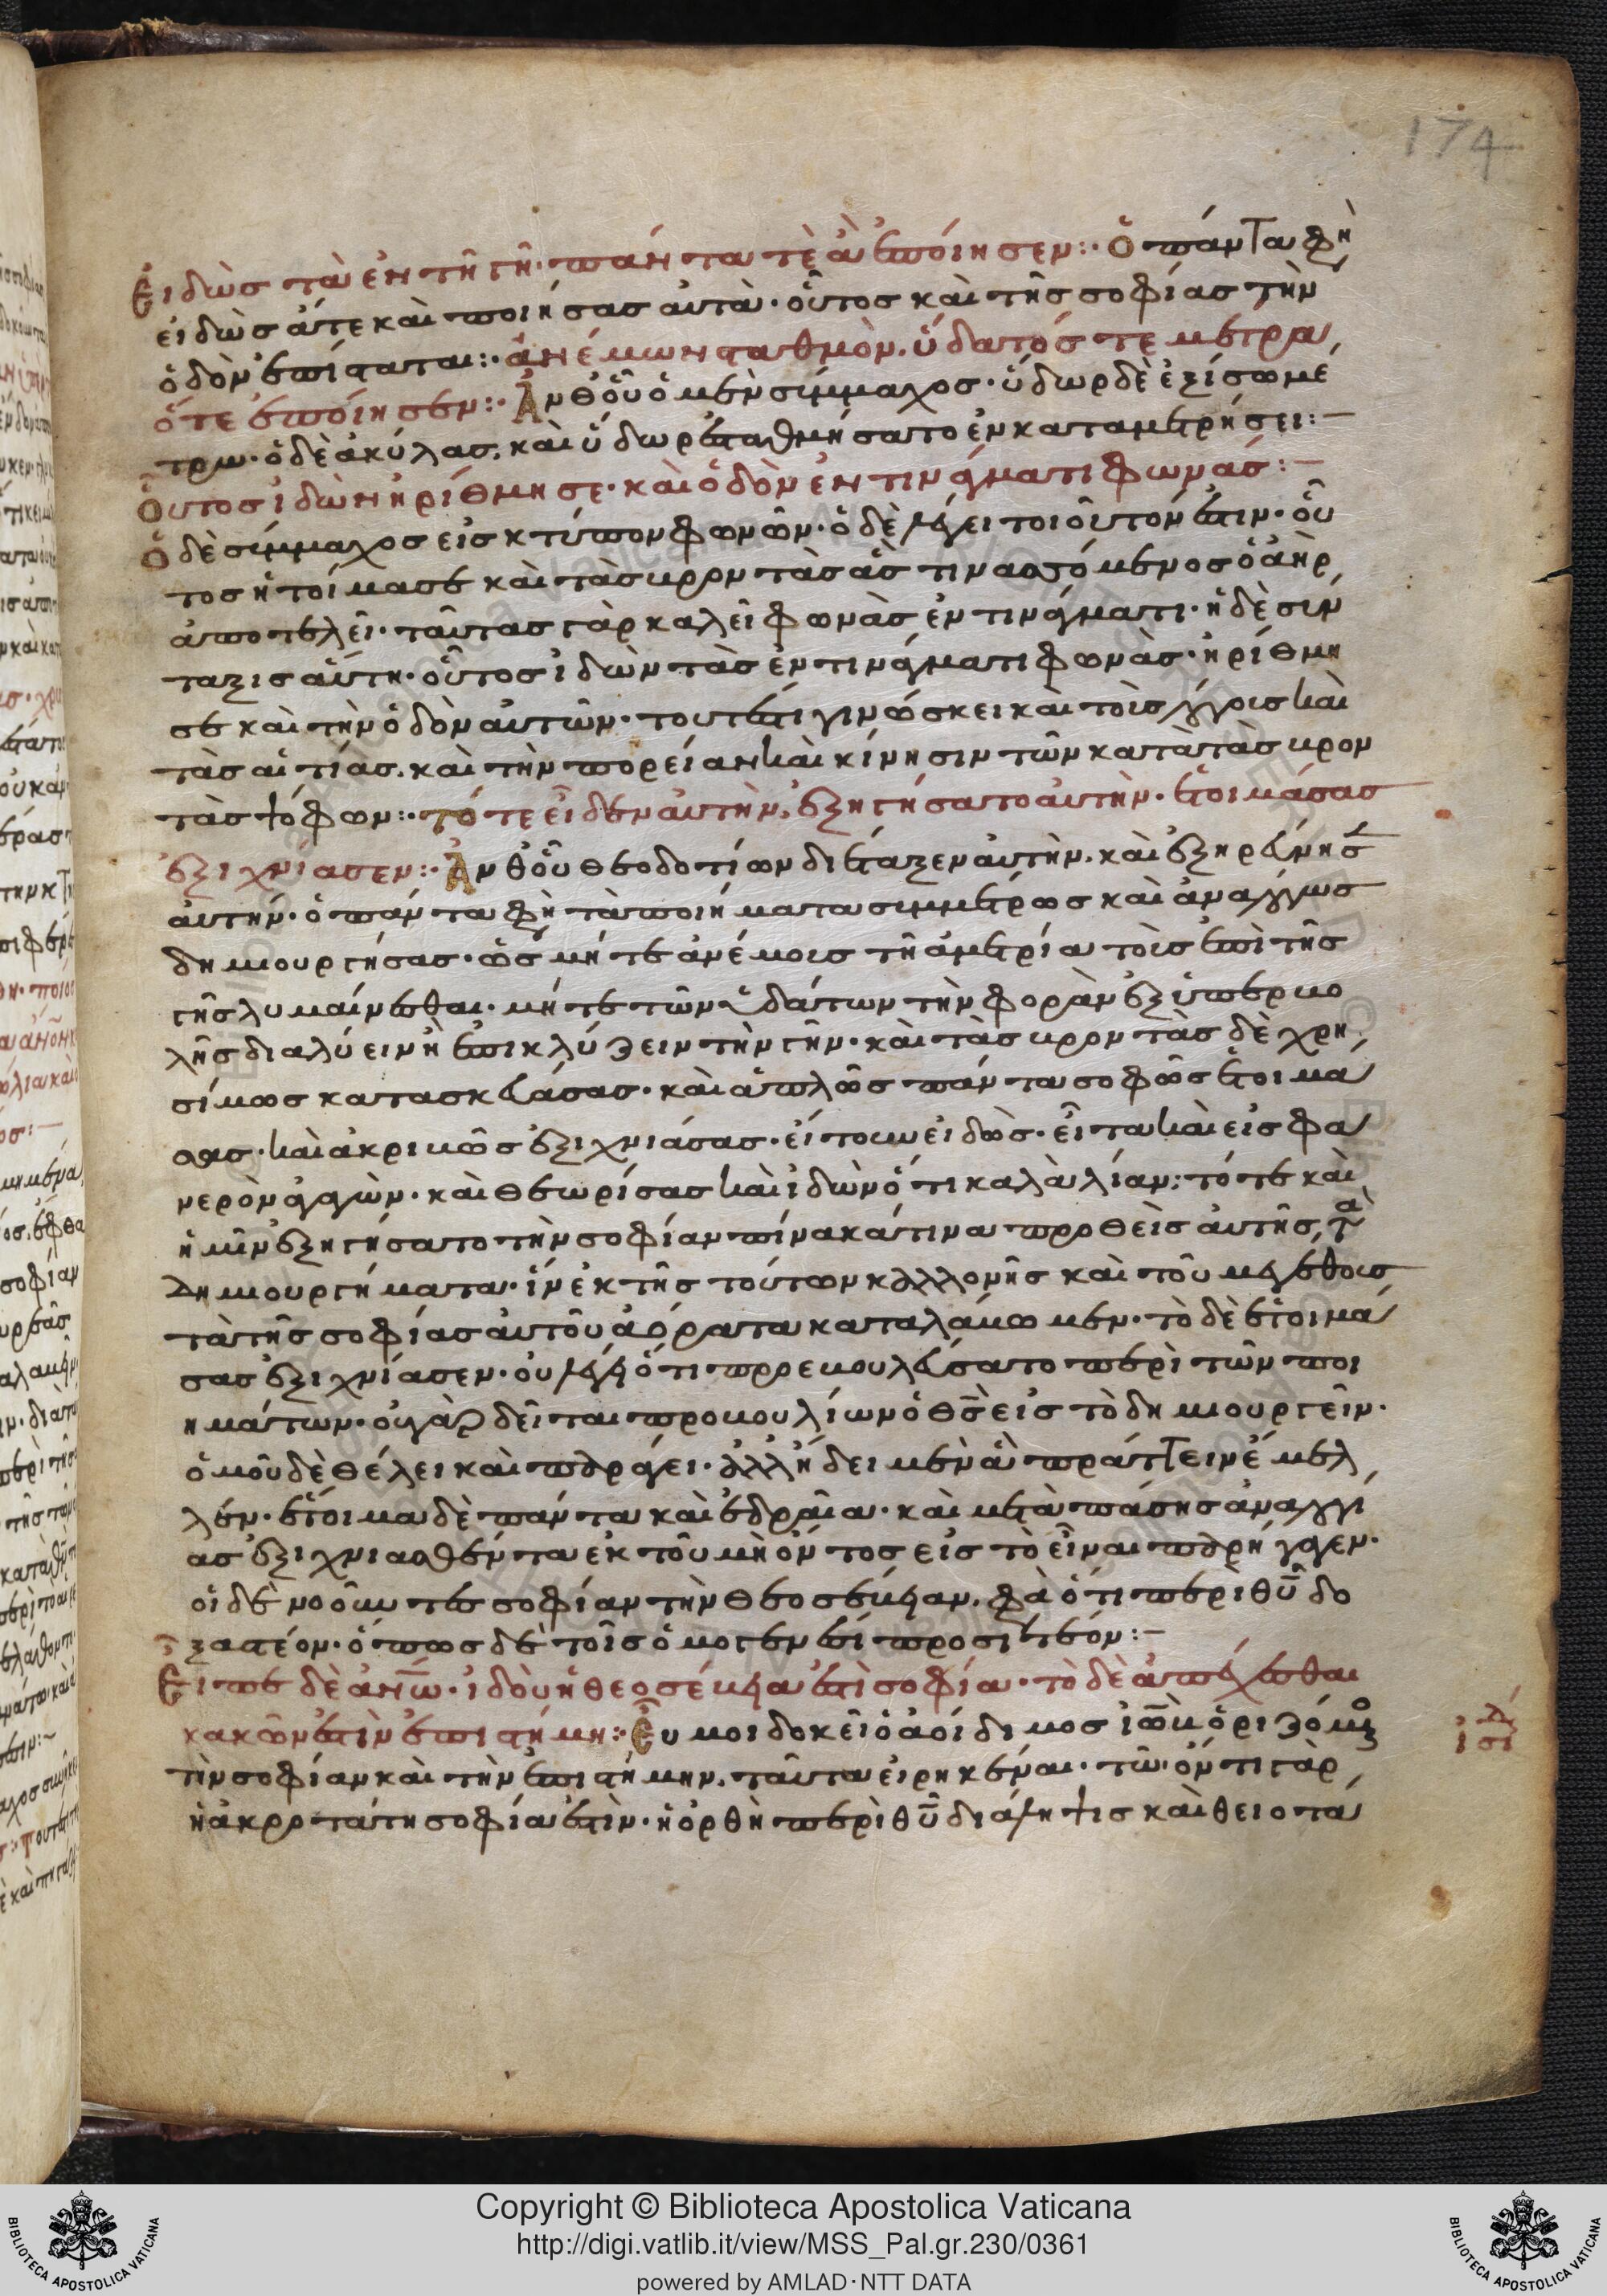 174
εἰδὼς τὰ ἐν τῆ γῆ· πάντα τὲ ἃ ἐποίησεν:· ὁ πάντα φη
εἰδὼς ἅτε καὶ ποιήσας αὐτὰ· οὗτος καὶ τῆς σοφίας τὴν
ὁδὸν ἐπίσταται:· ἀνέμων σταθμὸν. ὕδατός τε μέτρα
ὅτε ἐποίησεν:· Ἀνθ οὗ ὁ μὲν σύμμαχος· ὕδωρ δὲ ἐξίσω μέ
τρω· ὁ δὲ ἀκύλας. καὶ ὕδωρ ἐσταθμήσατο ἐν καταμετρήσει:–
Οὕτος ἰδὼν ἠρίθμησε· καὶ ὁδὸν ἐν τινάγματι φωνάς:–
Ὁ δὲ σύμμαχος εἰς κτύπον φωνῶν· ὁ δὲ λέγει τοιοῦτόν ἐστιν· οὗ
τος ἡτοίμασε καὶ τὰς βροντὰς ἃς τινασσόμενος ὁ ἀὴρ
ἀποτελεῖ· ταύτας γὰρ καλεῖ φωνὰς ἐν τινάγματι· ἡ δὲ σύν
ταξις αὕτη· οὗτος ἰδὼν τὰς ἐν τινάγματι φωνὰς· ἠρίθμη
σε καὶ τὴν ὁδὸν αὐτῶν· τουτέστι γινώσκει καὶ τοὺς λόγους καὶ
τὰς αἰτίας. καὶ τὴν πορείαν καὶ κίνησιν τῶν κατὰ τὰς βρον
τὰς ψόφων:· τότε εἶδεν αὐτὴν, ἐξηγήσατο αὐτὴν· ἑτοιμάσας
ἐξιχνίασεν:· Ἀνθ οὗ θεοδοτίων διέταξεν αὐτὴν. καὶ ἐξηρεύνησ
αὐτην· ὁ πάντα φη τὰ ποιήματα συμμέτρως καὶ ἀναλόγως
δημιουργήσας· ὡς μήτε ἀνέμοις τῆ ἀμετρία τοὺς ἐπὶ τῆς
γῆς λυμαίνεσθαι· μήτε τῶν ὑδάτων τὴν φορὰν ἐξ ὑπερβο
λῆς διαλύειν ἢ ἐπικλύζειν τὴν γῆν· καὶ τὰς βροντὰς δὲ χρη
σίμως κατασκευάσας· καὶ ἁπλῶς πάντα σοφῶς ἑτοιμά
σας· καὶ ἀκριβῶς ἐξιχνιάσας· εἴτουν εἰδὼς· εἶτα καὶ εἰς φα
νερὸν ἀγαγὼν· καὶ θεωρίσας καὶ ἰδὼν ὅτι καλὰ λίαν: τότε καὶ
ἡμῖν ἐξηγήσατο τὴν σοφίαν πίνακά τινα προθεὶς αὐτῆς, τὰ
δημιουργήματα· ἵν ἐκ τῆς τούτων καλλονῆς καὶ τοῦ μεγέθους
τὰ τῆς σοφίας αὐτοῦ ἀόρατα καταλάβωμεν· τὸ δὲ ἑτοιμά
σας ἐξιχνίασεν· οὐ λέγει ὅτι προεβουλεύσατο περὶ τῶν ποι
ημάτων· οὐ γὰρ δεῖται προβουλίων ὁ θς εἰς τὸ δημιουργεῖν·
ὁμοῦ δὲ θέλει καὶ παράγει· ἀλλ ἤδει μὲν ἃ πράττειν ἔμελ
λεν· ἕτοιμα δὲ πάντα καὶ ἑδραῖα· καὶ μετὰ πάσης ἀναλογί
ας ἐξιχνιασθέντα ἐκ τοῦ μὴ ὄντος εἰς τὸ εἶναι παρήγαγεν·
οἱ δὲ νοοῦντες σοφίαν τὴν θεοσέβειαν. φα ὅτι περὶ θῦ δο
ξαστέον· ὅπως δὲ τοῖς ὁμογενέσι προσιτέον:–
Εἶπε δὲ ἀνῶ· ἰδοὺ ἡ θεοσέβεια ἐστὶ σοφία· τὸ δὲ ἀπέχεσθαι
κακῶν ἐστὶν ἐπιστήμη:· Εὖ μοι δοκεῖ ὁ ἀοίδιμος ἰὼβ ὁριζόμος
τὴν σοφίαν καὶ τὴν ἐπιστήμην. ταῦτα εἰρηκέναι· τῶ ὄντι γὰρ
ἡ ἀκροτάτη σοφία ἐστὶν· ἡ ὀρθὴ περὶ θῦ διάληψις καὶ θειοτα
ἰσι
Copyright © Biblioteca Apostolica Vaticana
http://digi.vatlib.it/view/MSS_Pal.gr.230/0361
powered by AMLAD·NTT DATA
BIBLIOTECA APOSTOLICA VATICANA
BIBLIOTECA APOSTOLICA VATICANA